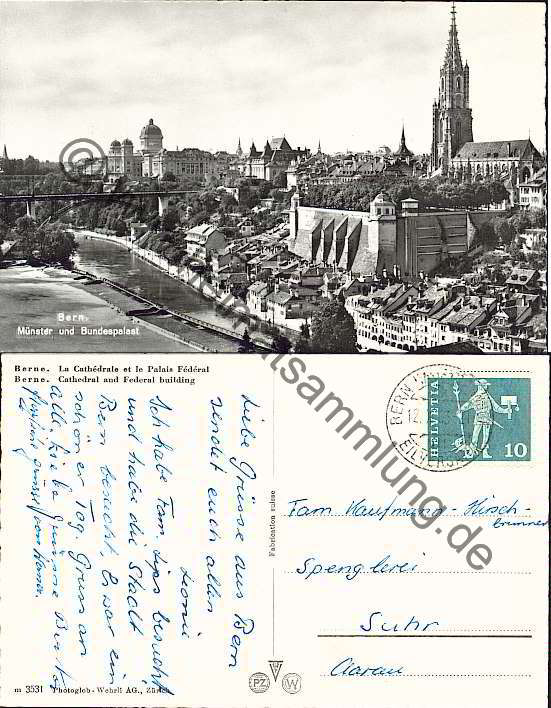 Bern.
Münster und Bundespalast
Berne. La Cathédrale et le Palais Fédéral
Berne. Cathedral and Federal building
Liebe Grüsse aus Bern
sendet euch allen
Ich habe Fam. besucht
und habe die Stadt
Bern besucht. Es war ein
schöner Tag. Gruss an
alle. Liebe Grüsse
Fabrication suisse
BERN
HELVETIA
10
Fam Kaufmann-Hirsch-
brunner
Spenglerei
Suhr
Aarau
m 3531 Photoglob-Wehrli AG., Zürich
PZ
W
ansichtskartensammlung.de
©